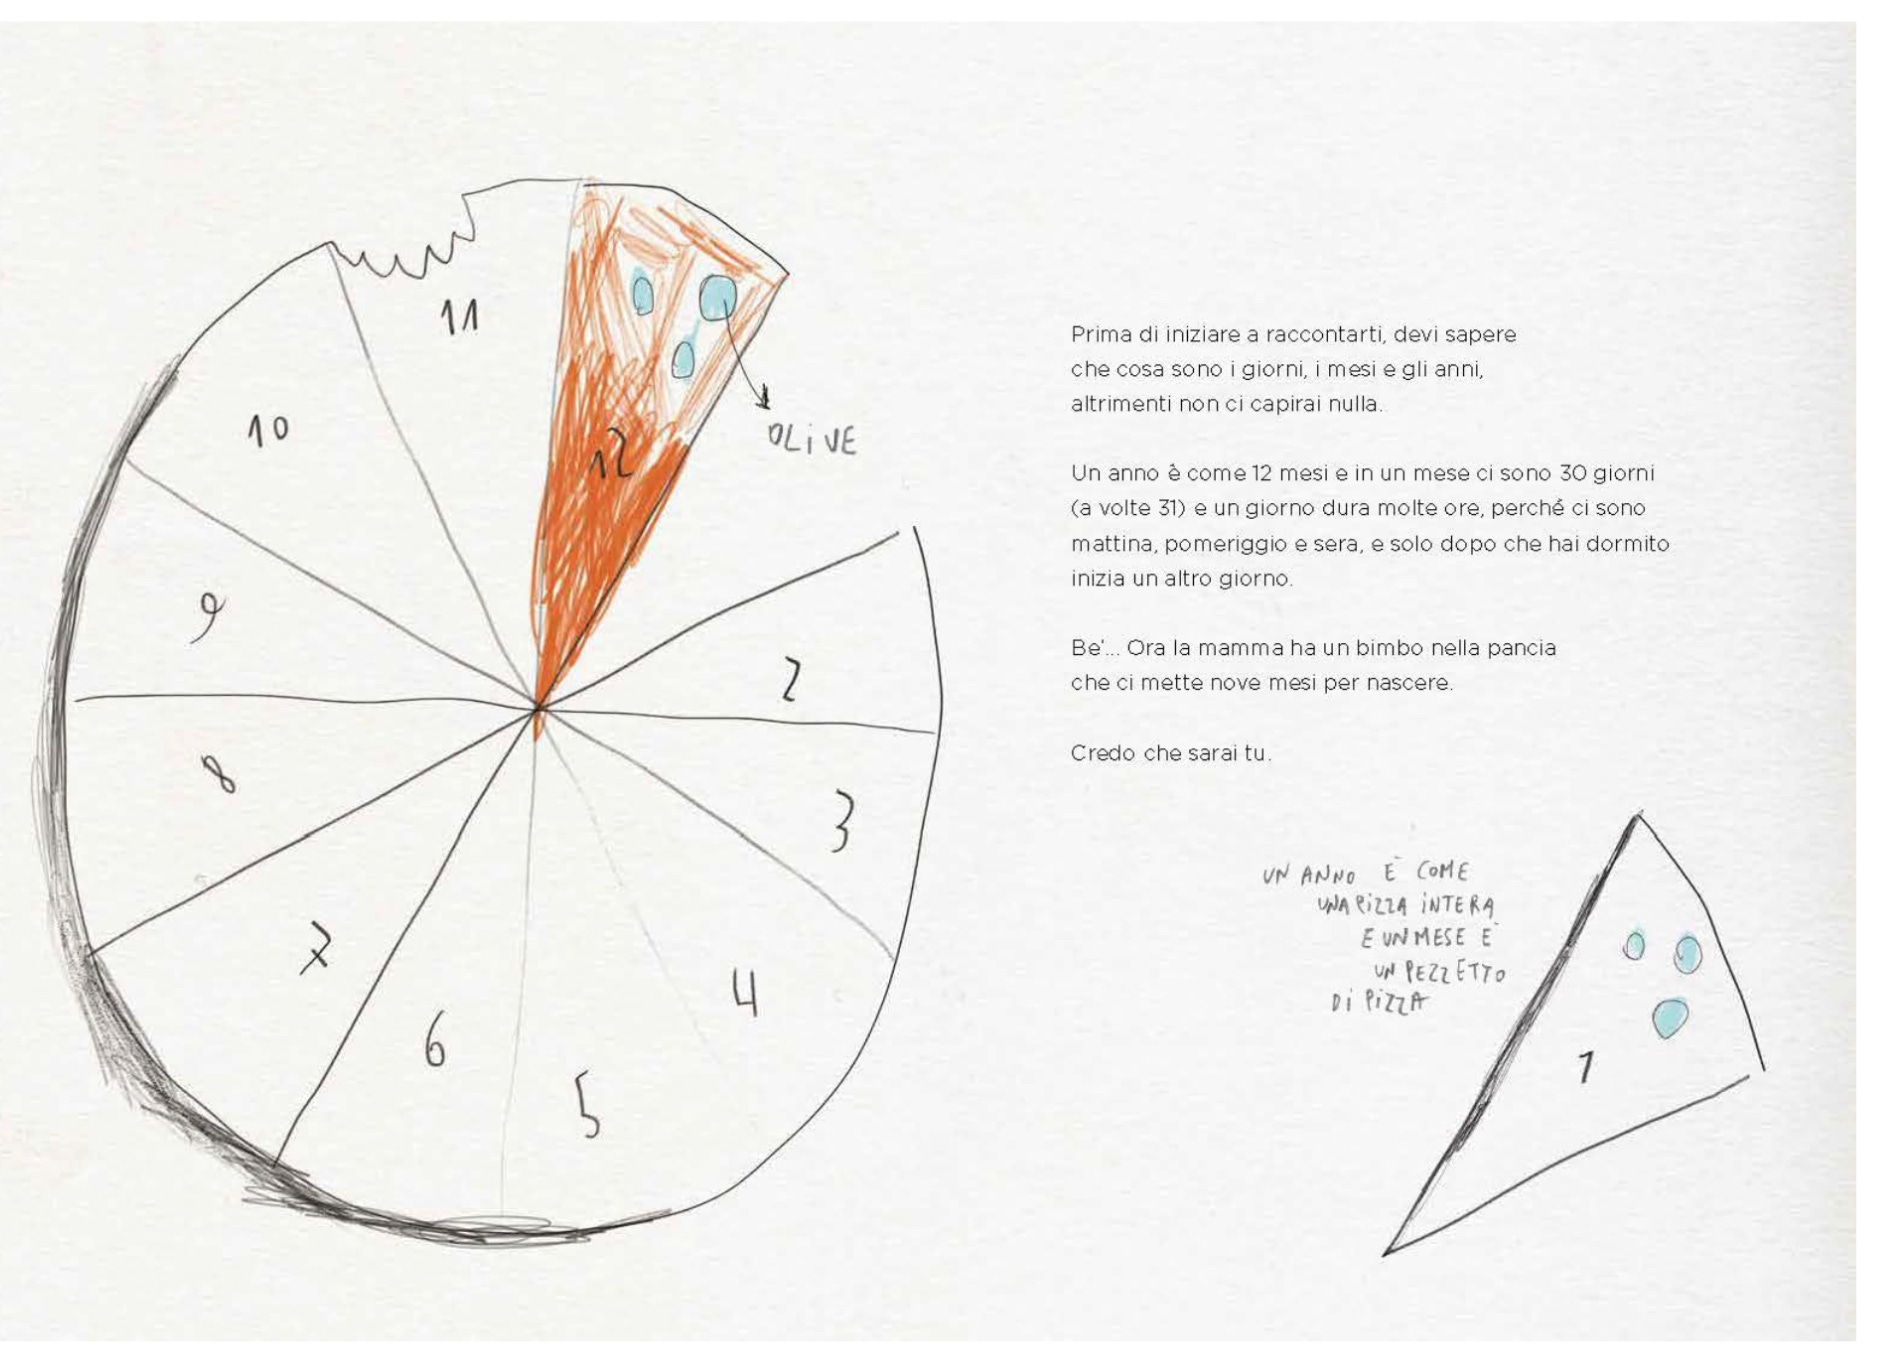 11
10
12
OLIVE
9
2
8
3
7
4
6
5
Prima di iniziare a raccontarti, devi sapere
che cosa sono i giorni, i mesi e gli anni,
altrimenti non ci capirai nulla.
Un anno è come 12 mesi e in un mese ci sono 30 giorni
(a volte 31) e un giorno dura molte ore, perché ci sono
mattina, pomeriggio e sera, e solo dopo che hai dormito
inizia un altro giorno.
Be'... Ora la mamma ha un bimbo nella pancia
che ci mette nove mesi per nascere.
Credo che sarai tu.
UN ANNO È COME
UNA PIZZA INTERA
E UN MESE È
UN PEZZETTO
DI PIZZA
1